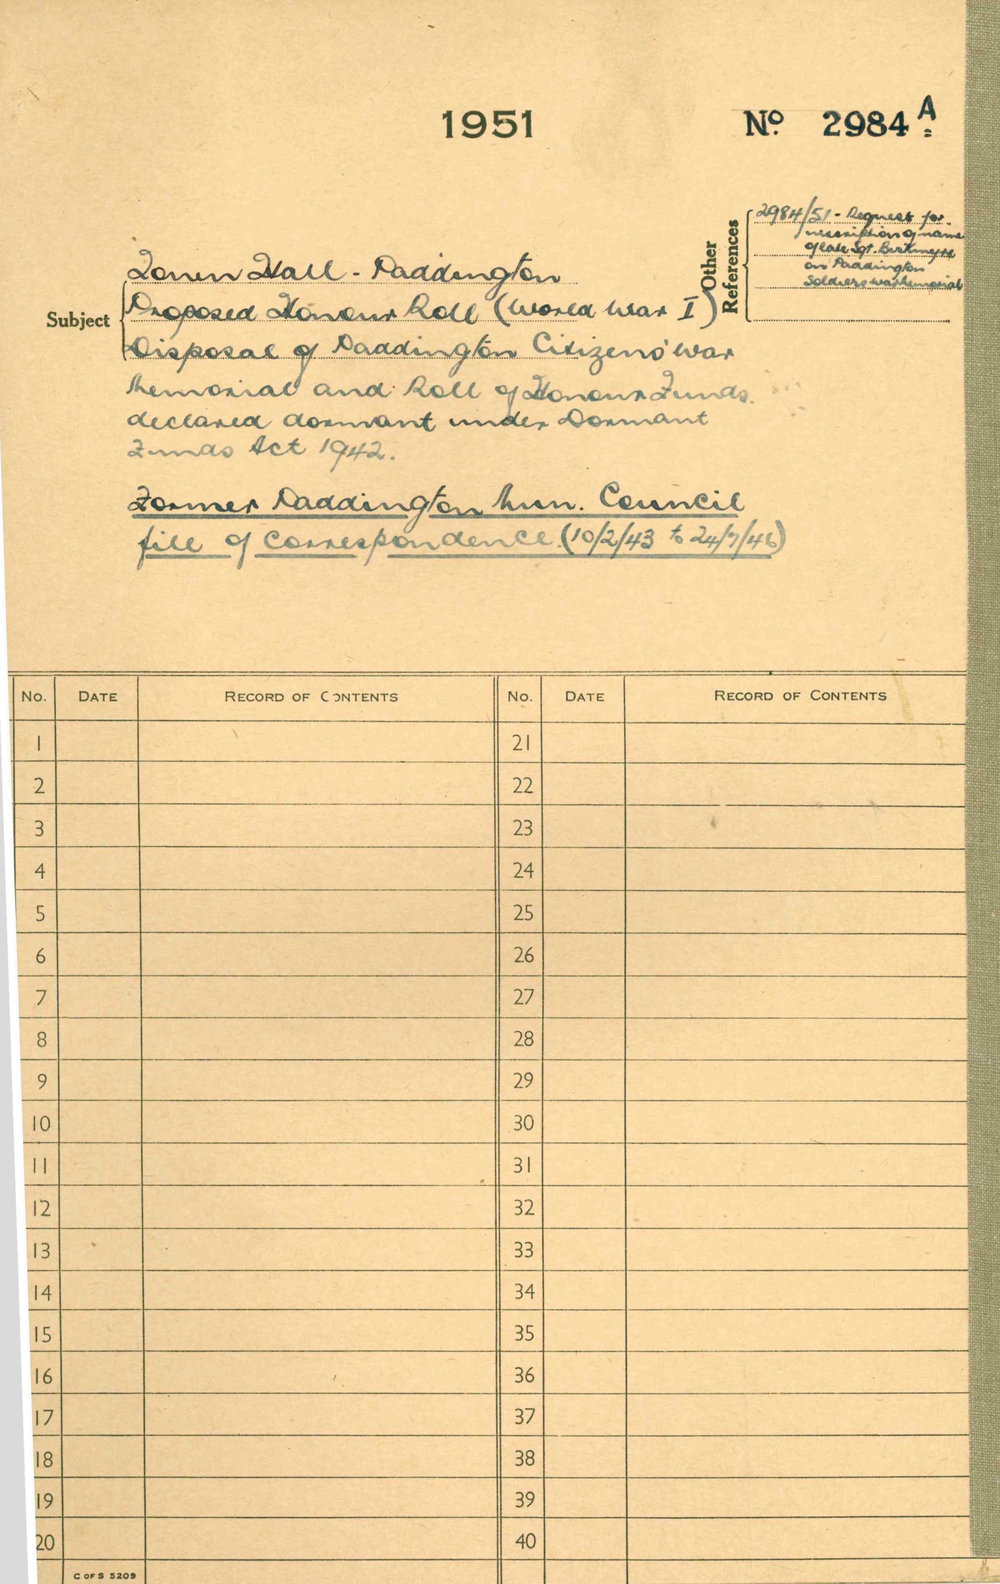 1951
No. 2984 A
Subject
Town Hall - Paddington
Proposed Honour Roll (World War I)
Disposal of Paddington Citizens' War
Memorial and Roll of Honour Funds
declared dormant under Dormant
Funds Act 1942.
Former Paddington Mun. Council
file of correspondence (10/2/43 to 24/7/46)
Other References
2984/51 - Request for
inscription of name
of late Sgt.
on Paddington
Soldiers war memorial
No. DATE RECORD OF CONTENTS No. DATE RECORD OF CONTENTS
1 21
2 22
3 23
4 24
5 25
6 26
7 27
8 28
9 29
10 30
11 31
12 32
13 33
14 34
15 35
16 36
17 37
18 38
19 39
20 40
C OF S 5209